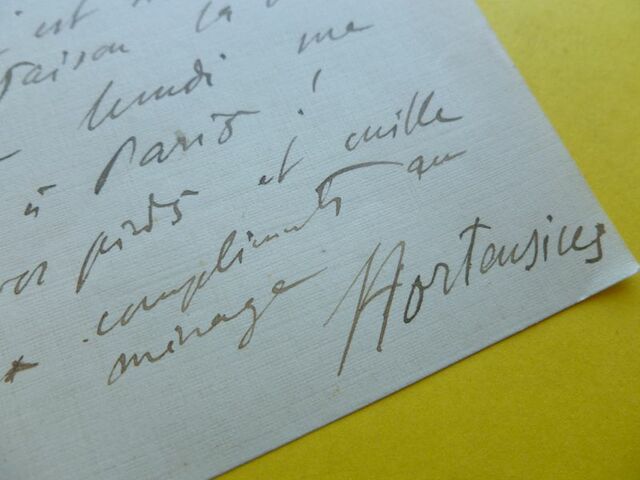 est
raison la
lundi me
à Paris !
vos pieds et mille
compliments au
ménage Hortensius